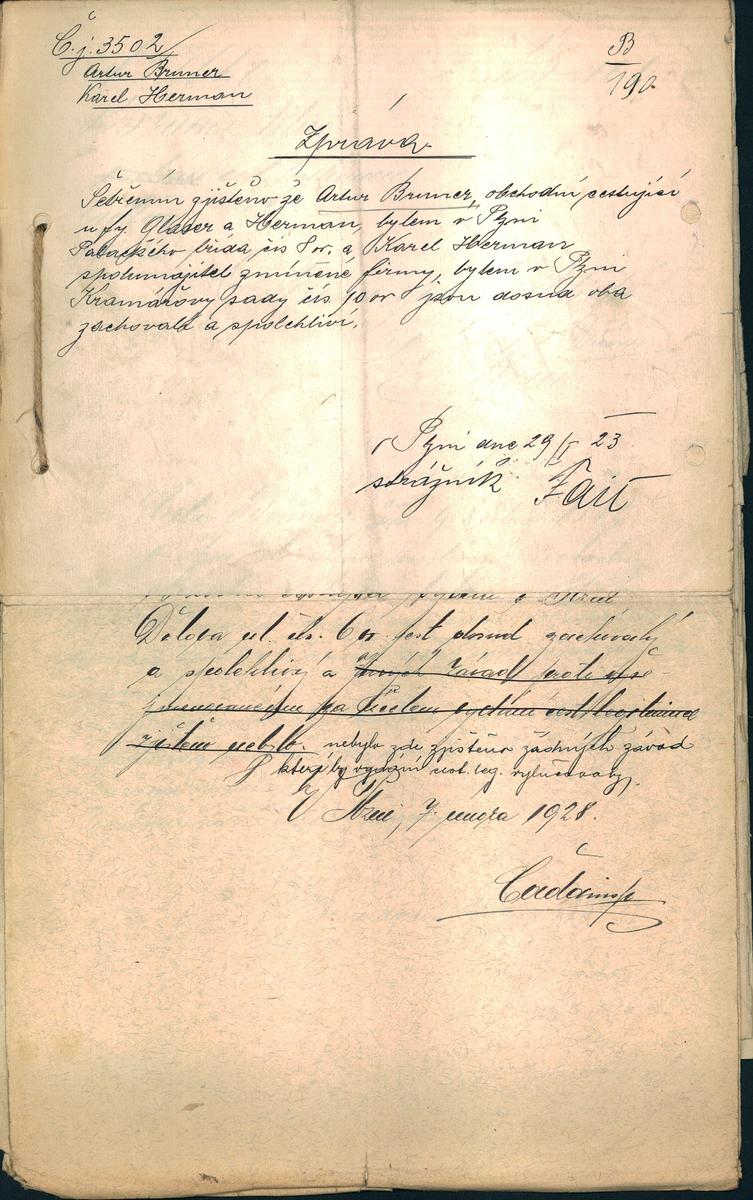 Č.j. 3502/
Artur Bruner
Karel Herman
B
190
Zpráva.
Šetřením zjištěno že Artur Bruner, obchodní cestující
u fy. Glaser a Herman, bytem v Plzni
Palackého třída čís 8 or. a Karel Herman
spolumajitel zmíněné firmy, bytem v Plzni
Kramářovy sady čís 10 or jsou dosud oba
zachovalí a spolehliví.
V Plzni dne 29/I 23
strážník Fait
bytem v Plzni
ul. čís. 6 or. jest dosud zachovalý
a spolehlivý a závad proti
za účelem vydání cest. legitimace
zjištěno nebylo. nebylo zde zjištěno žádných závad
které by vydání cest. leg. vylučovaly.
V Plzni, 7 února 1928.